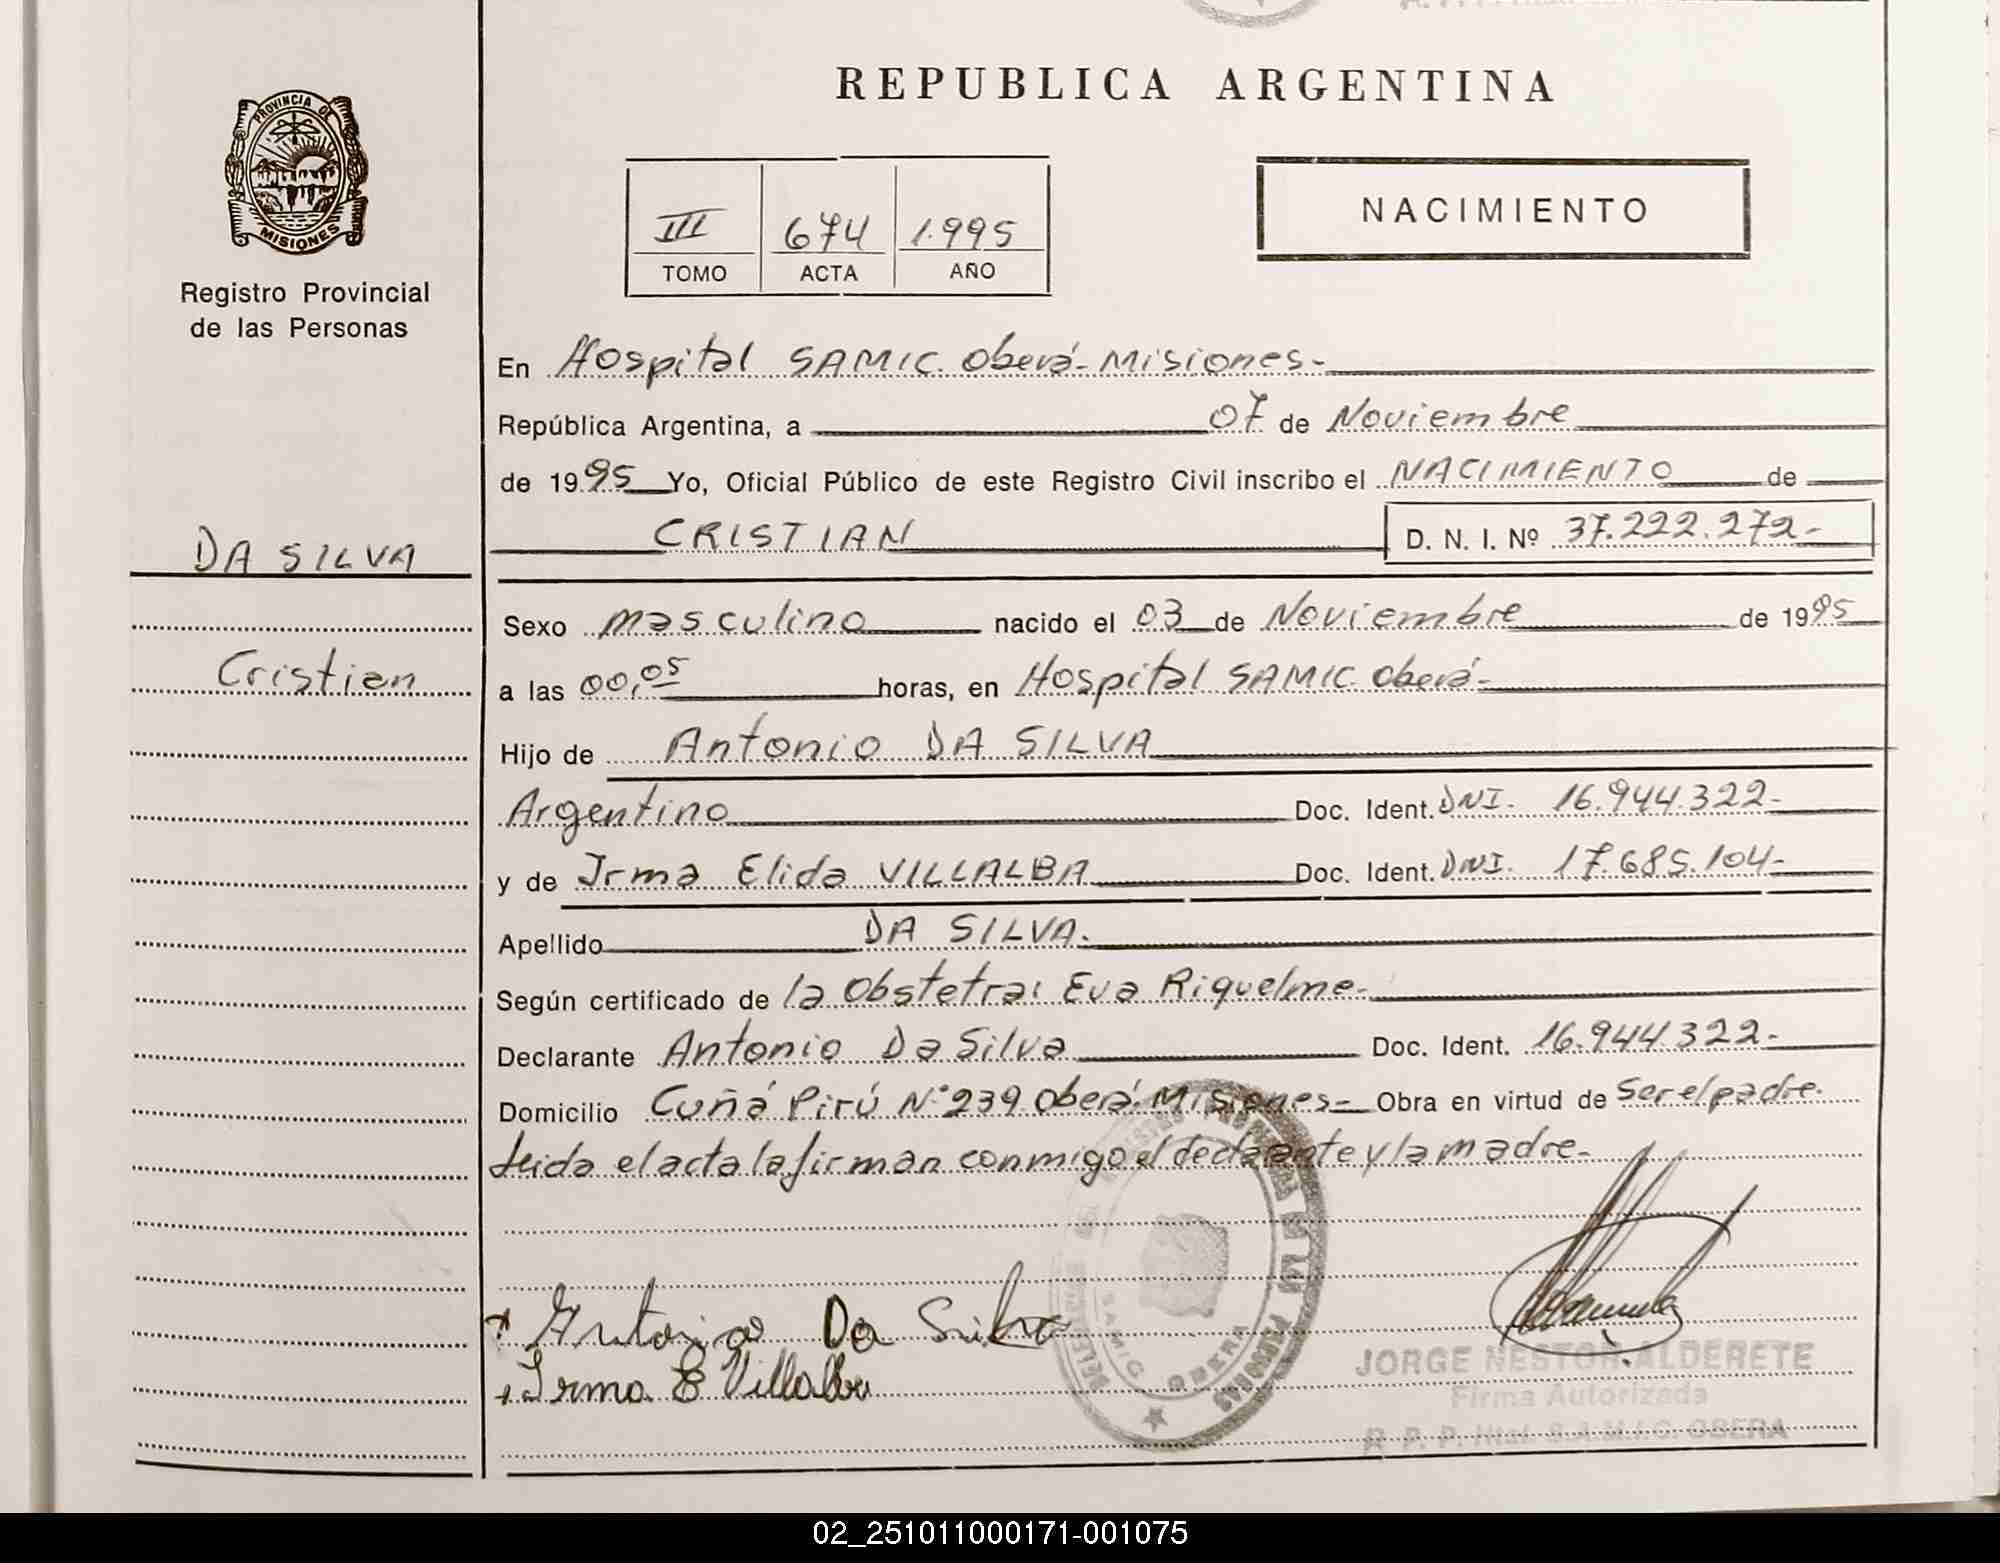 REPUBLICA ARGENTINA
PROVINCIA DE
MISIONES
Registro Provincial
de las Personas
III 674 1.995
TOMO ACTA AÑO
NACIMIENTO
En Hospital SAMIC. Oberá- Misiones-
República Argentina, a 07 de Noviembre
de 1995 Yo, Oficial Público de este Registro Civil inscribo el NACIMIENTO de
CRISTIAN D. N. I. Nº 37.222.272-
DA SILVA
Sexo masculino nacido el 03 de Noviembre de 1995
Cristian
a las 00,05 horas, en Hospital SAMIC. Oberá-
Hijo de Antonio DA SILVA
Argentino Doc. Ident. DNI. 16.944.322-
y de Irma Elida VILLALBA Doc. Ident. DNI. 17.685.104-
Apellido DA SILVA.
Según certificado de la Obstetra: Eva Riquelme-
Declarante Antonio Da Silva Doc. Ident. 16.944.322-
Domicilio Cuñá Pirú Nº 239. Oberá. Misiones- Obra en virtud de Ser el padre.
Leida el acta la firman conmigo el declarante y la madre-
Antonio Da Silva
Irma E Villalba
SAMIC OBERA
JORGE NESTOR ALDERETE
Firma Autorizada
R. P. P. Htal. S.A.M.I.C. OBERA
02_251011000171-001075